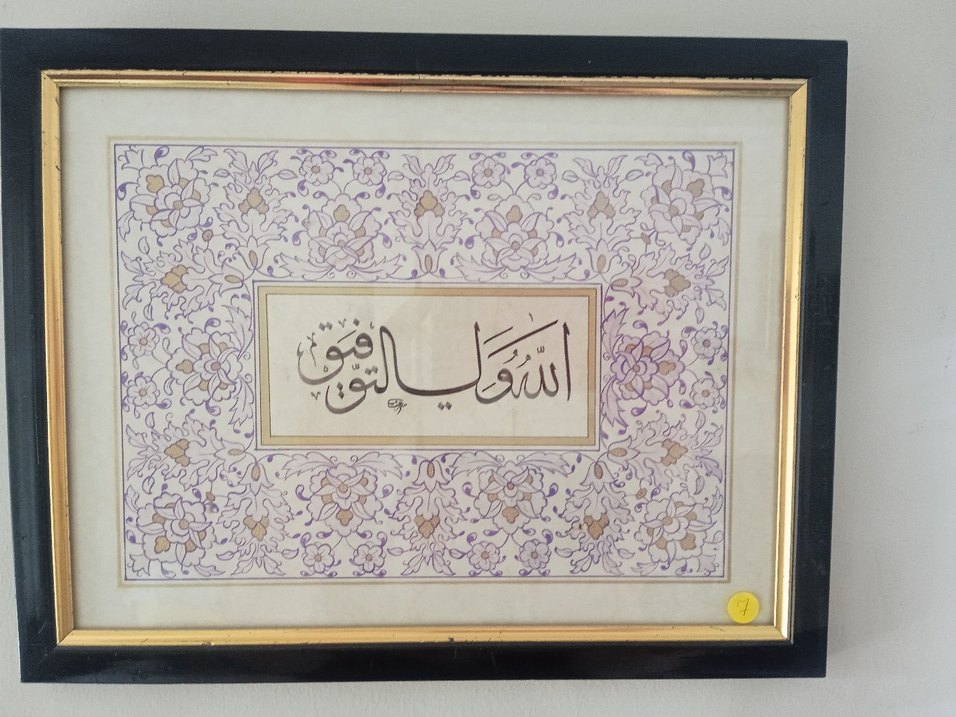 اللّٰهُ وَلِيُّ التَّوْفِيقِ
7